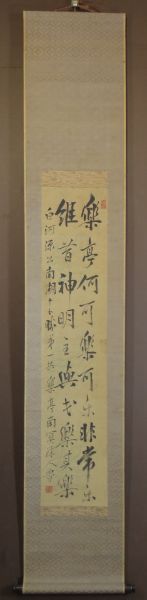 樂亭何可樂可樂非常樂
維昔神明主與民樂其樂
白河源公南湖十六勝第一共樂亭